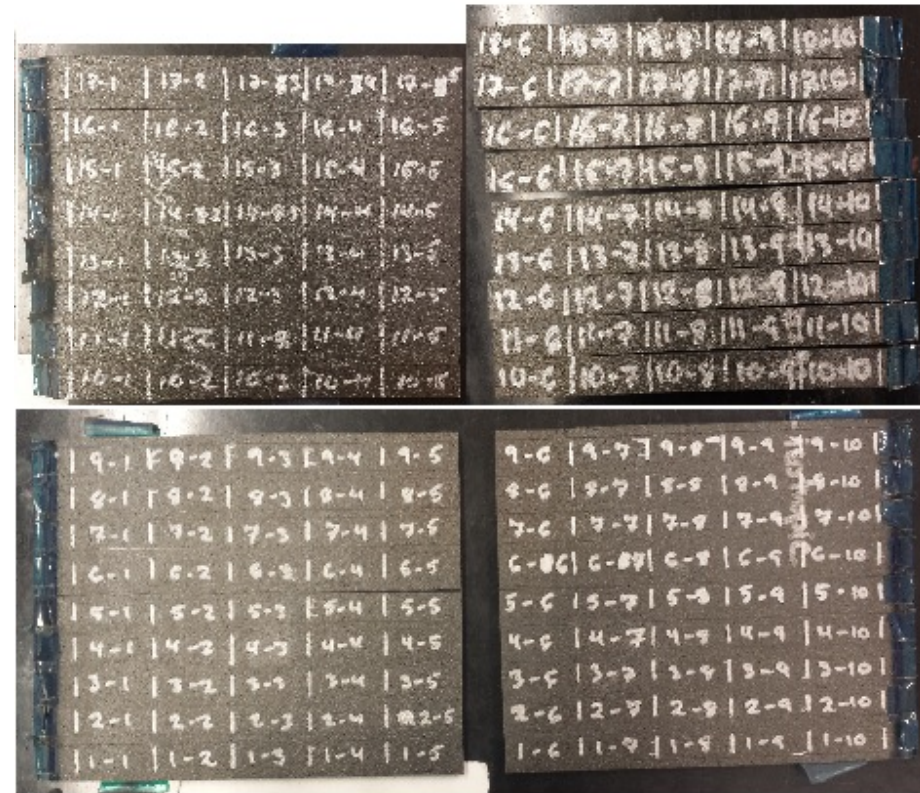 17-1 | 17-2 | 17-3 | 17-4 | 17-5
16-1 | 16-2 | 16-3 | 16-4 | 16-5
15-1 | 15-2 | 15-3 | 15-4 | 15-5
14-1 | 14-2 | 14-3 | 14-4 | 14-5
13-1 | 13-2 | 13-3 | 13-4 | 13-5
12-1 | 12-2 | 12-3 | 12-4 | 12-5
11-1 | 11-2 | 11-3 | 11-4 | 11-5
10-1 | 10-2 | 10-3 | 10-4 | 10-5
18-6 | 18-7 | 18-8 | 18-9 | 18-10
17-6 | 17-7 | 17-8 | 17-9 | 17-10
16-6 | 16-7 | 16-8 | 16-9 | 16-10
15-6 | 15-7 | 15-8 | 15-9 | 15-10
14-6 | 14-7 | 14-8 | 14-9 | 14-10
13-6 | 13-7 | 13-8 | 13-9 | 13-10
12-6 | 12-7 | 12-8 | 12-9 | 12-10
11-6 | 11-7 | 11-8 | 11-9 | 11-10
10-6 | 10-7 | 10-8 | 10-9 | 10-10
9-1 | 9-2 | 9-3 | 9-4 | 9-5
8-1 | 8-2 | 8-3 | 8-4 | 8-5
7-1 | 7-2 | 7-3 | 7-4 | 7-5
6-1 | 6-2 | 6-3 | 6-4 | 6-5
5-1 | 5-2 | 5-3 | 5-4 | 5-5
4-1 | 4-2 | 4-3 | 4-4 | 4-5
3-1 | 3-2 | 3-3 | 3-4 | 3-5
2-1 | 2-2 | 2-3 | 2-4 | 2-5
1-1 | 1-2 | 1-3 | 1-4 | 1-5
9-6 | 9-7 | 9-8 | 9-9 | 9-10
8-6 | 8-7 | 8-8 | 8-9 | 8-10
7-6 | 7-7 | 7-8 | 7-9 | 7-10
6-6 | 6-7 | 6-8 | 6-9 | 6-10
5-6 | 5-7 | 5-8 | 5-9 | 5-10
4-6 | 4-7 | 4-8 | 4-9 | 4-10
3-6 | 3-7 | 3-8 | 3-9 | 3-10
2-6 | 2-7 | 2-8 | 2-9 | 2-10
1-6 | 1-7 | 1-8 | 1-9 | 1-10